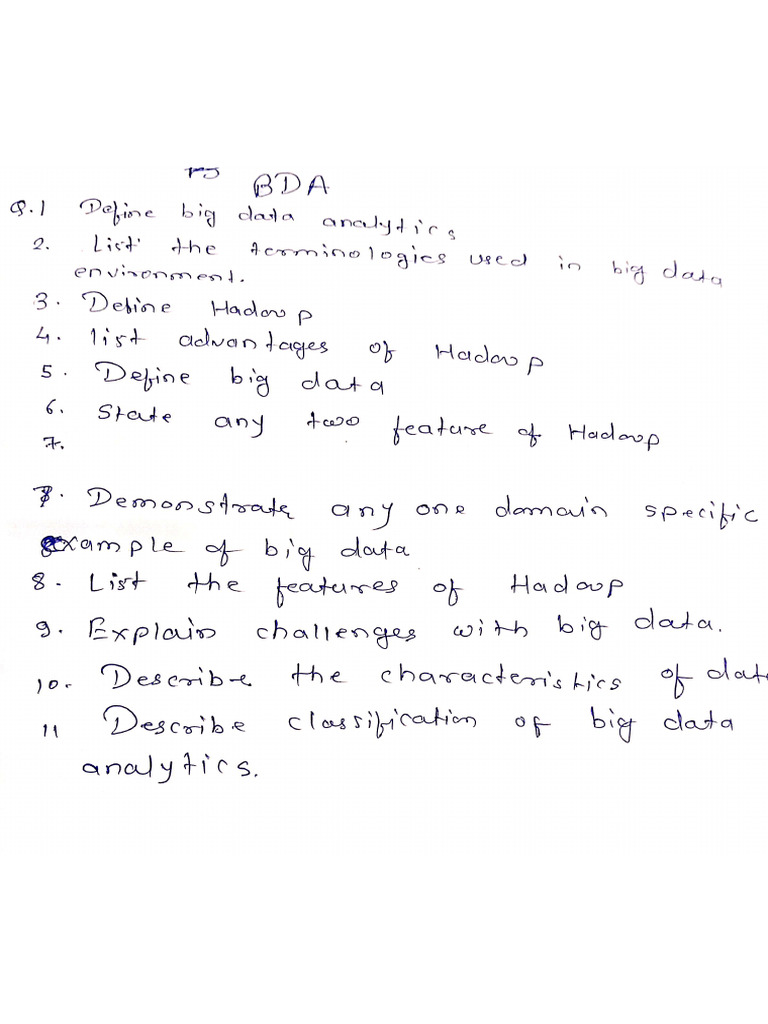 BDA
Q.1 Define big data analytics
2. List the terminologies used in big data
environment.
3. Define Hadoop
4. list advantages of Hadoop
5. Define big data
6. State any two feature of Hadoop
7.
7. Demonstrate any one domain specific
example of big data
8. List the features of Hadoop
9. Explain challenges with big data.
10. Describe the characteristics of data
11 Describe classification of big data
analytics.